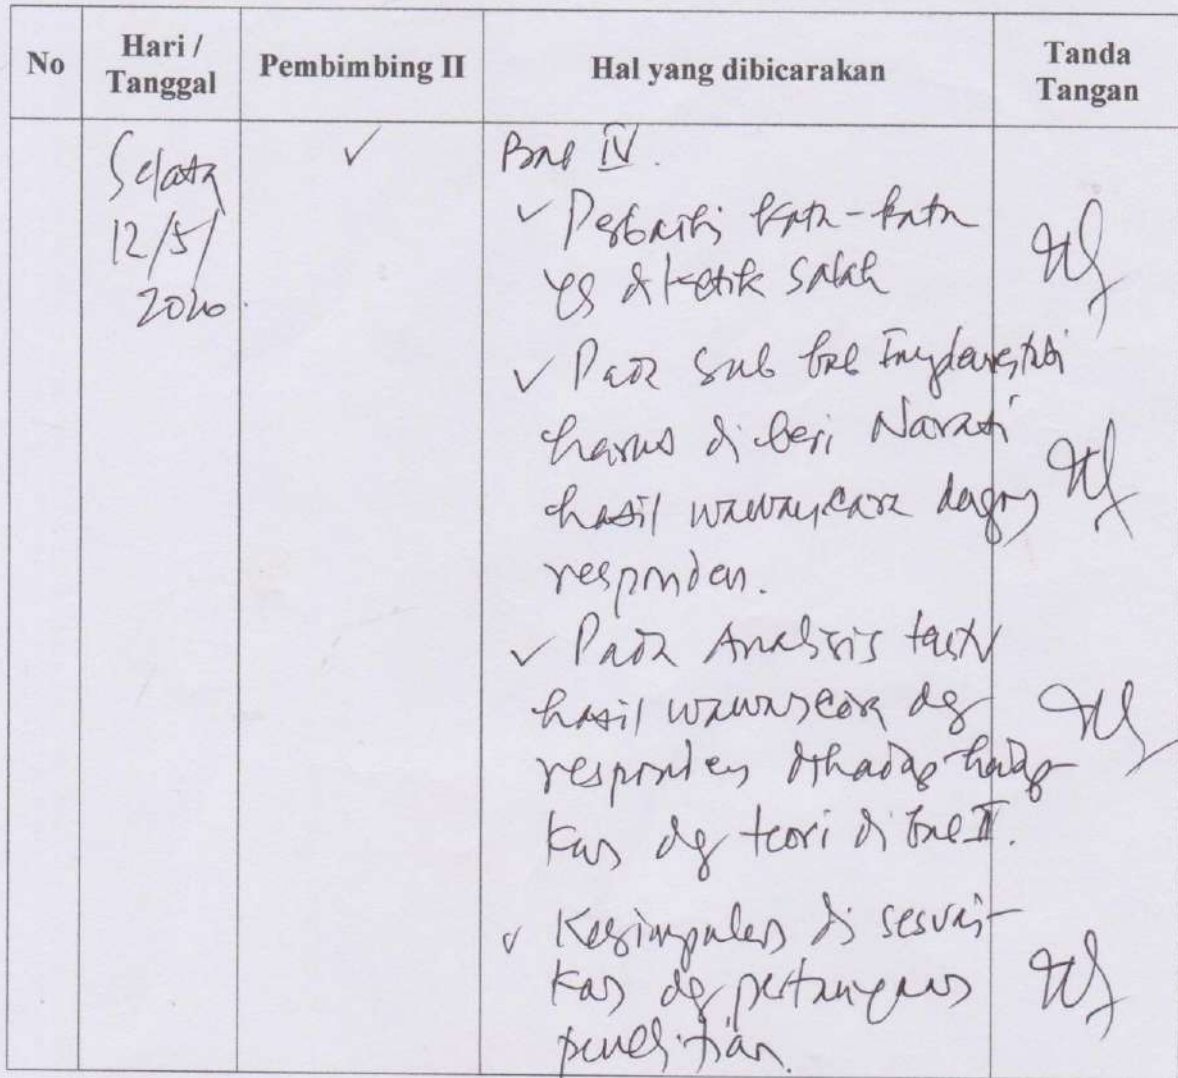 No
Hari /
Tanggal
Pembimbing II
Hal yang dibicarakan
Tanda
Tangan
Selasa
12/5/
2020.
✓
Bab IV.
✓ Perbaiki kata-kata
yg diketik salah
✓ Pada sub bab
harus di beri Narasi
hasil wawancara dengan
responden.
✓ Pada Analisis
hasil wawancara dg
responden dihadap-hadap
kan dg teori di bab II.
✓ Kesimpulan di sesuai-
kan dg pertanyaan
penelitian.